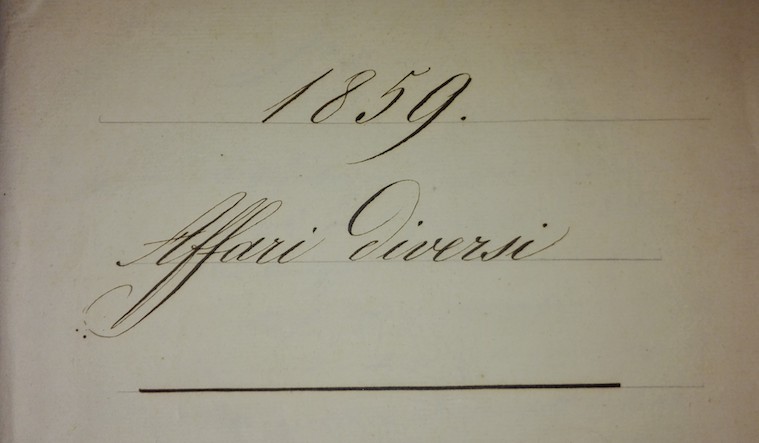 1859.
Affari diversi